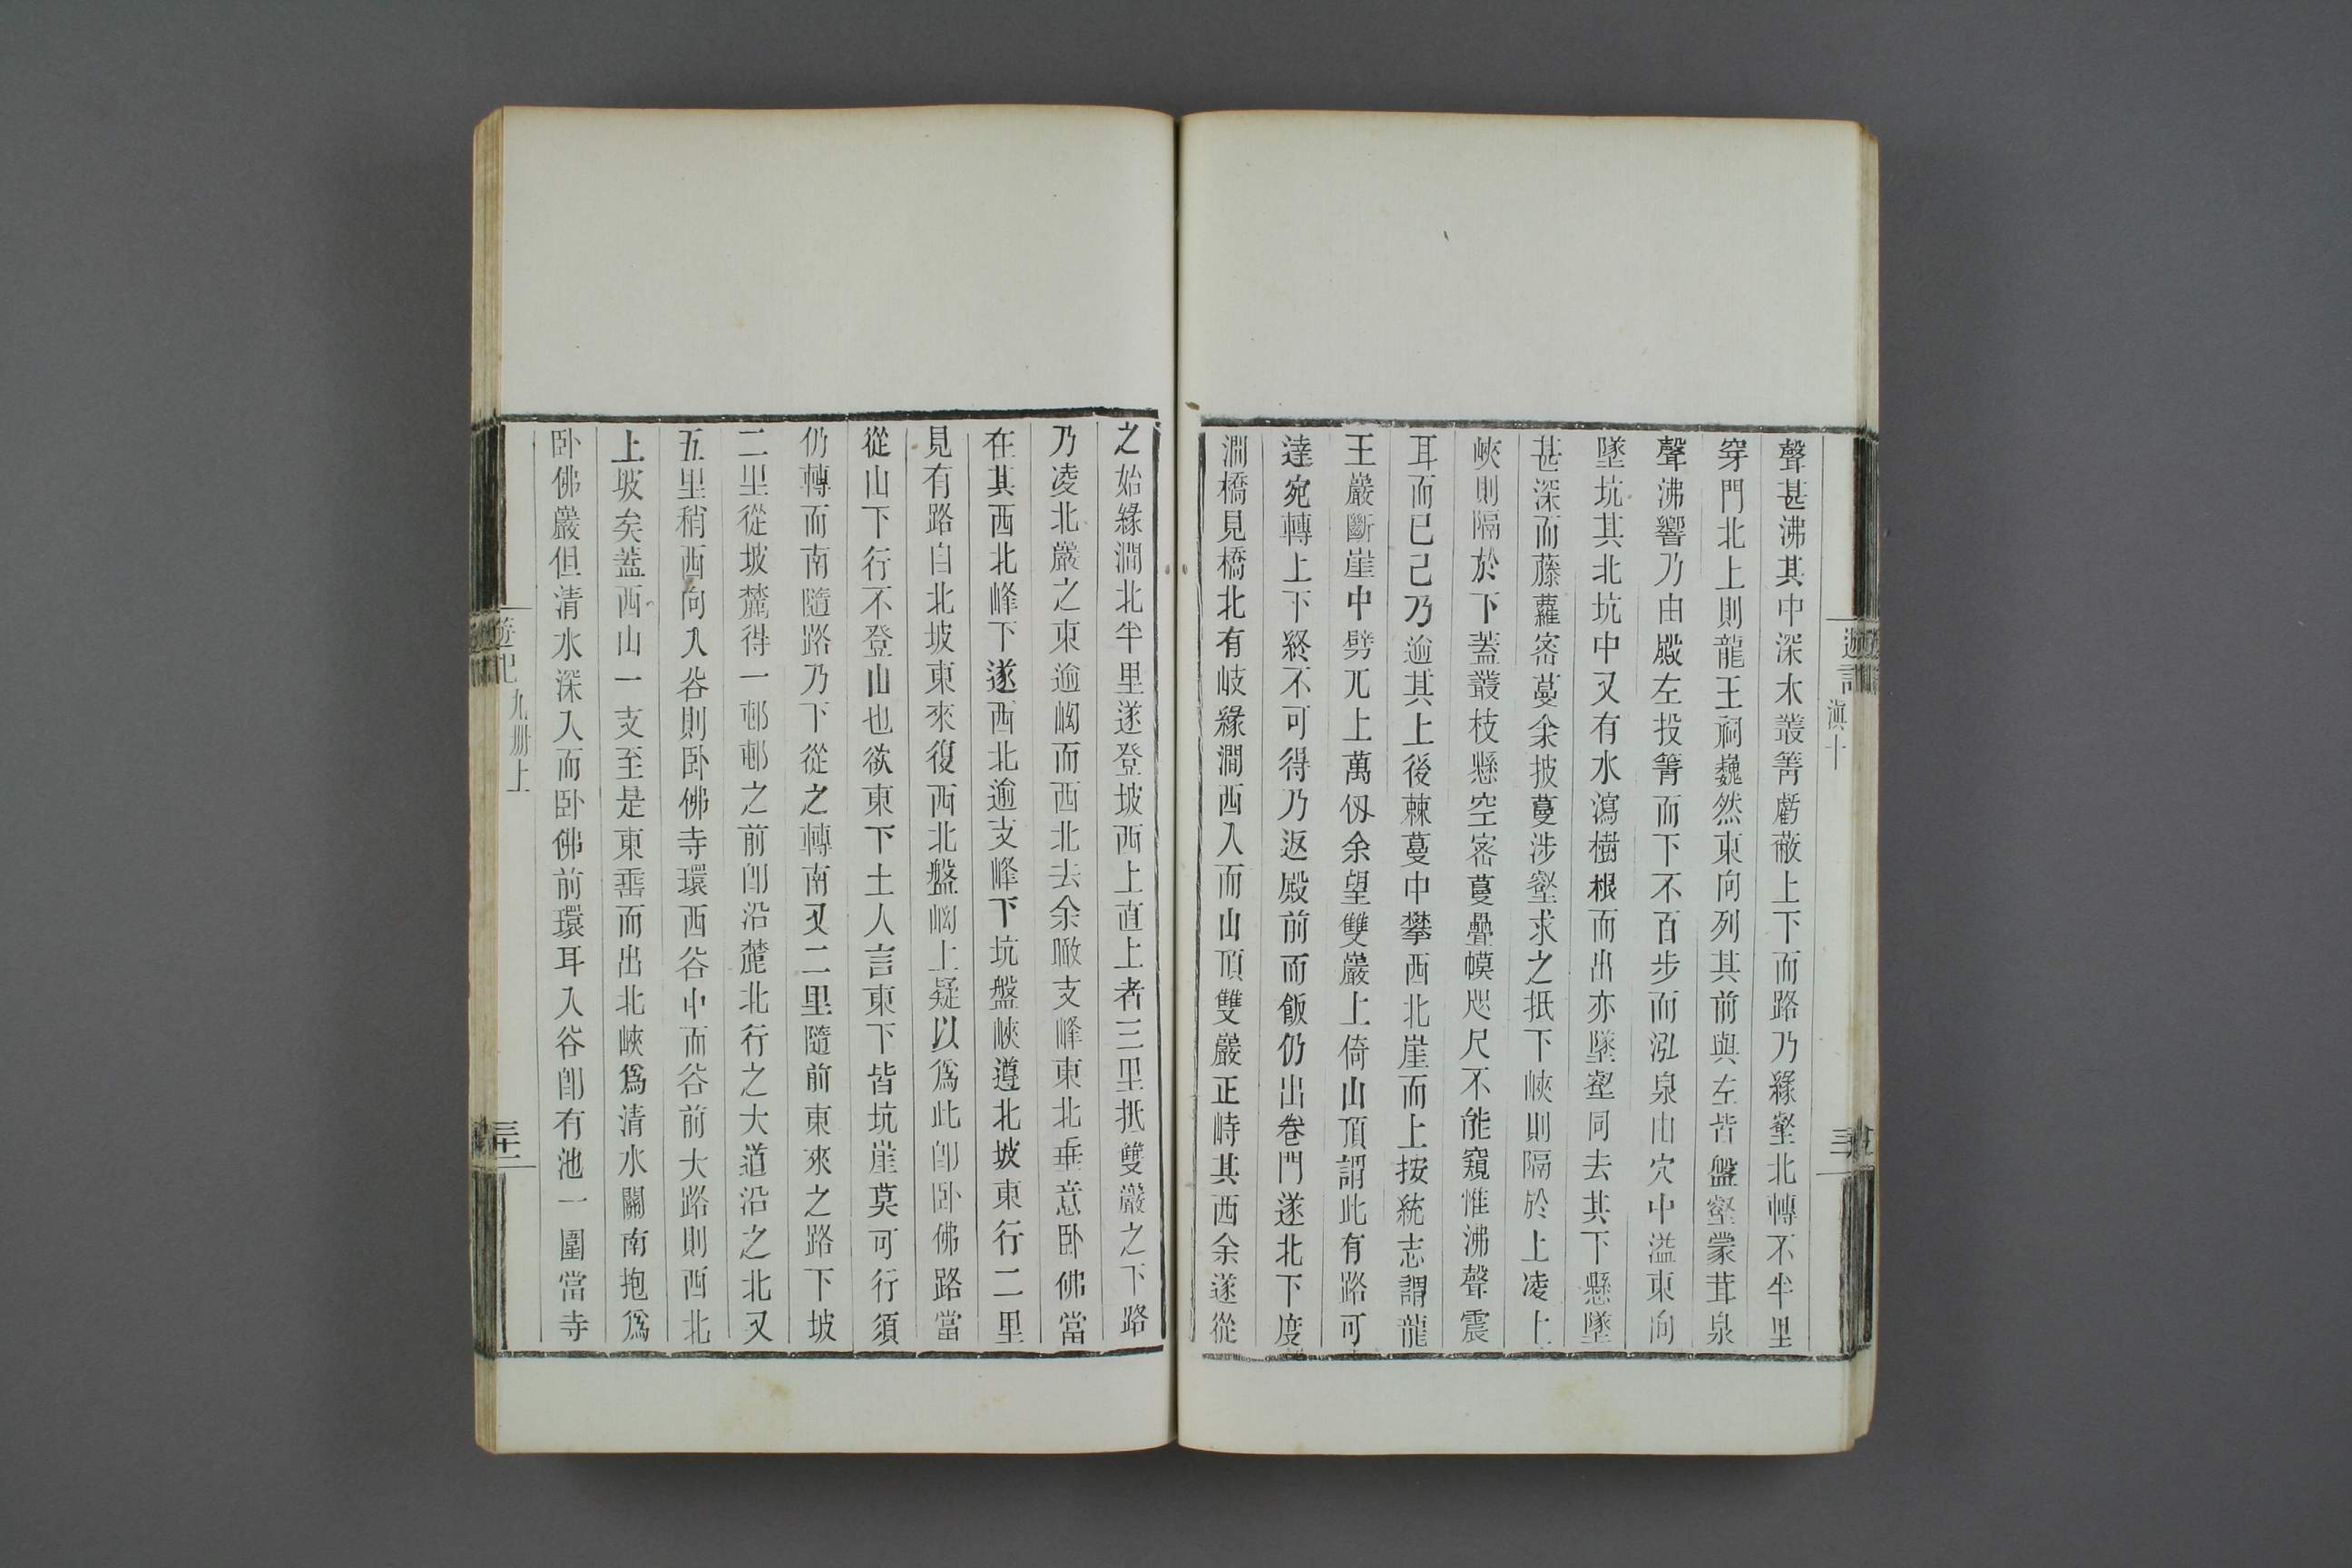 遊記
滇十
聲甚沸其中深木叢箐虧蔽上下而路乃緣壑北轉不半里
穿門北上則龍王祠巍然東向列其前與左皆盤壑蒙茸泉
聲沸響乃由殿左投箐而下不百步而泓泉由穴中溢東向
墜坑其北坑中又有水瀉樹根而出亦墜壑同去其下懸墜
甚深而藤蘿密蔓余披蔓涉壑求之抵下峽則隔於上凌上
峽則隔於下蓋叢枝懸空密蔓疊幙咫尺不能窺惟沸聲震
耳而已已乃逾其上後棘蔓中攀西北崖而上按統志謂龍
王巖斷崖中劈兀上萬仭余望雙巖上倚山頂謂此有路可
達宛轉上下終不可得乃返殿前而飯仍出巷門遂北下度
澗橋見橋北有岐緣澗西入而山頂雙巖正峙其西余遂從
之始緣澗北半里遂登坡西上直上者三里抵雙巖之下路
乃凌北巖之東逾㘭而西北去余瞰支峰東北垂意卧佛當
在其西北峰下遂西北逾支峰下坑盤峽遵北坡東行二里
見有路自北坡東來復西北盤㘭上疑以爲此卽卧佛路當
從山下行不登山也欲東下土人言東下皆坑崖莫可行須
仍轉而南隨路乃下從之轉南又二里隨前東來之路下坡
二里從坡麓得一邨邨之前卽沿麓北行之大道沿之北又
五里稍西向入谷則卧佛寺環西谷中而谷前大路則西北
上坡矣蓋西山一支至是東垂而出北峽爲清水關南抱爲
卧佛巖但清水深入而卧佛前環耳入谷卽有池一圍當寺
遊記
九册上
三十一